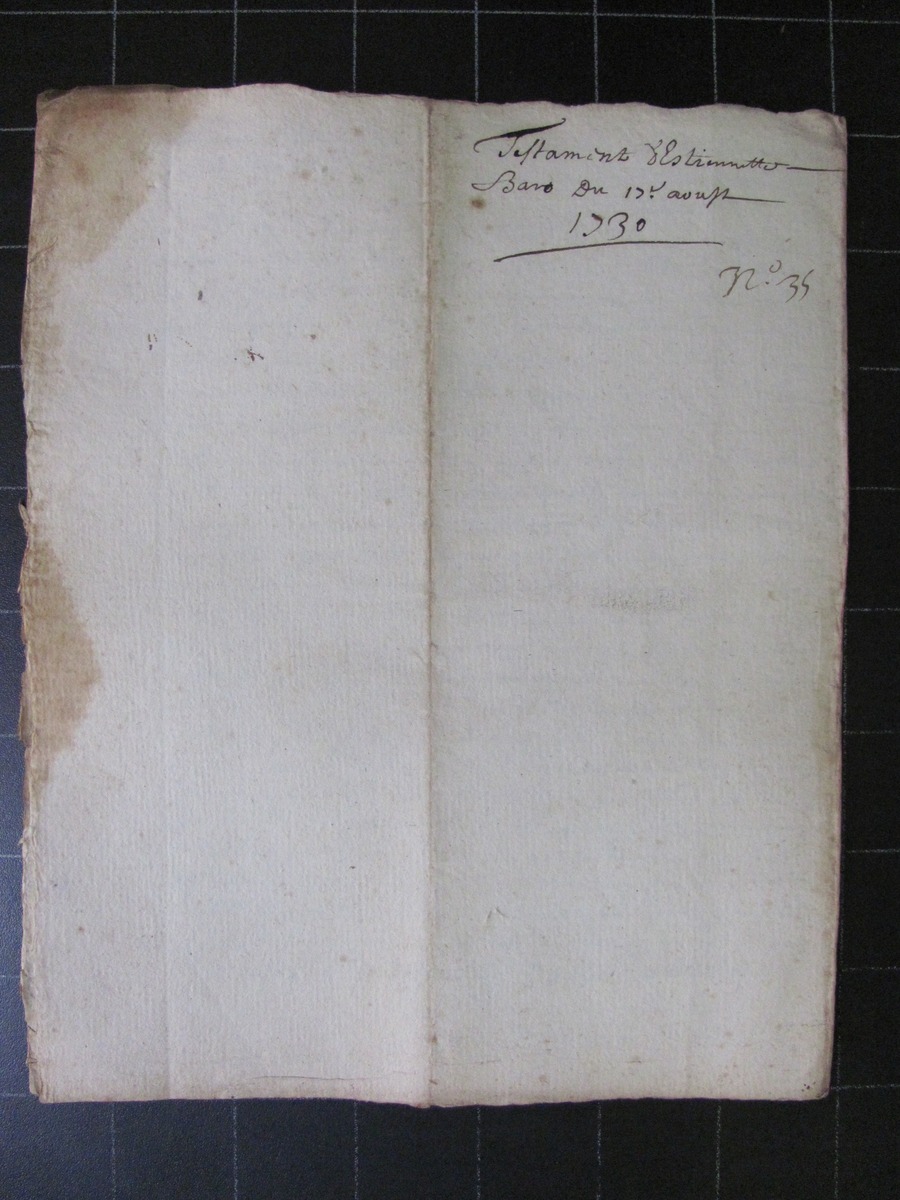 Testament d'Estiennette
Baro Du 17e aoust
1730
No. 35